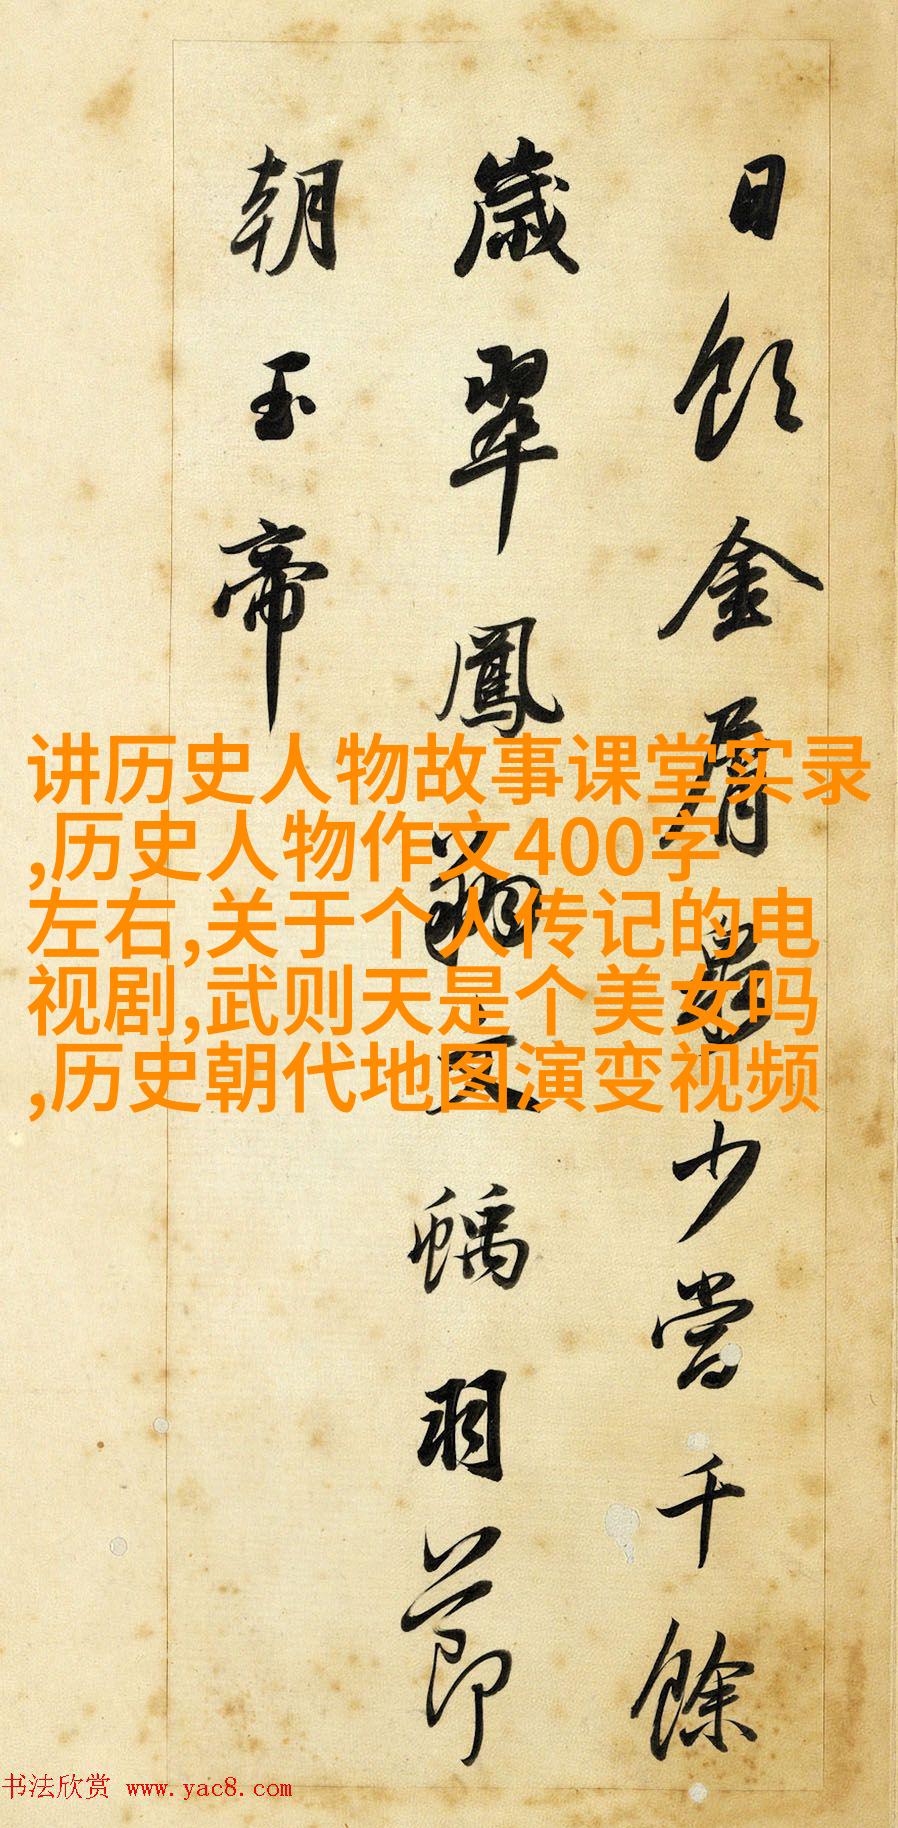 日飲金屑泉少當千餘
歲翠鳳翔文螭羽節
朝玉帝
讲历史人物故事课堂实录
,历史人物作文400字
左右,关于个人传记的电
视剧,武则天是个美女吗
,历史朝代地图演变视频
书法欣赏 www.yac8.com